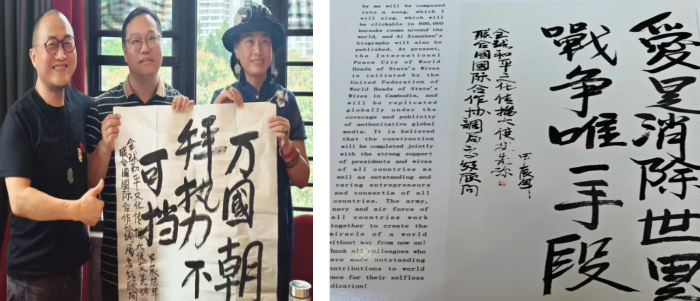 万國朝
拜势力不
可挡
全球和平文化传播
联合國國際合作協調局
顾问
by me will be composed
into a song, which I
will sing, which will
be clickable in 800,000
karaoke rooms around the
world, and Ai Xianchen's
biography will also be
published. At present,
the International
Peace City of World
Heads of State's Wives
is initiated by the
United Federation of
World Heads of State's
Wives in Cambodia, and
will be replicated
globally under the
coverage and publicity
of authoritative global
media. It is believed
that the construction
will be completed jointly
with the strong support
of presidents and wives
of all countries as
well as outstanding and
caring entrepreneurs
and consortia of all
countries. The army,
navy and air force of
all countries work
together to create the
miracle of a world
without war from now on!
Thank all colleagues who
have made outstanding
contributions to world
peace for their selfless
dedication!
愛是消除世界
戰争唯一手段
甲辰年
全球和平文化传播大使
联合國國際合作協調局
顾问